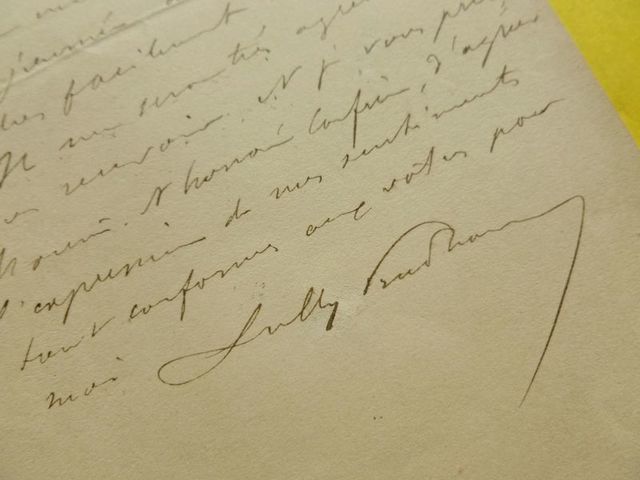 très facilement
Il me serait très agré
recevoir. Et je vous prie
honoré Confrère, d'agréer
l'expression de mes sentiments
tout conformes aux vôtres pour
moi. Sully Prudhomme